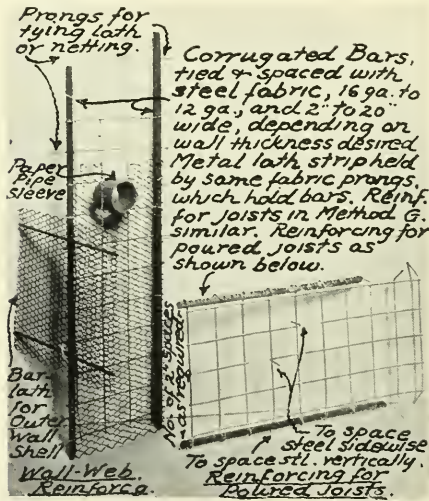 Prongs for
tying lath
or netting.
Corrugated Bars,
tied & spaced with
steel fabric, 16 ga. to
12 ga., and 2" to 20"
wide, depending on
wall thickness desired
Metal lath strip held
by same fabric prongs,
which hold bars. Reinf.
for joists in Method G.
similar. Reinforcing for
poured joists as
shown below.
Paper
Pipe
Sleeve
Bar-
lath
for
Outer
Wall
Shell
Wall-Web
Reinforcg.
No. of 2" spaces
as required
To space
steel sidewise
To space stl. vertically.
Reinforcing for
Poured Joists.